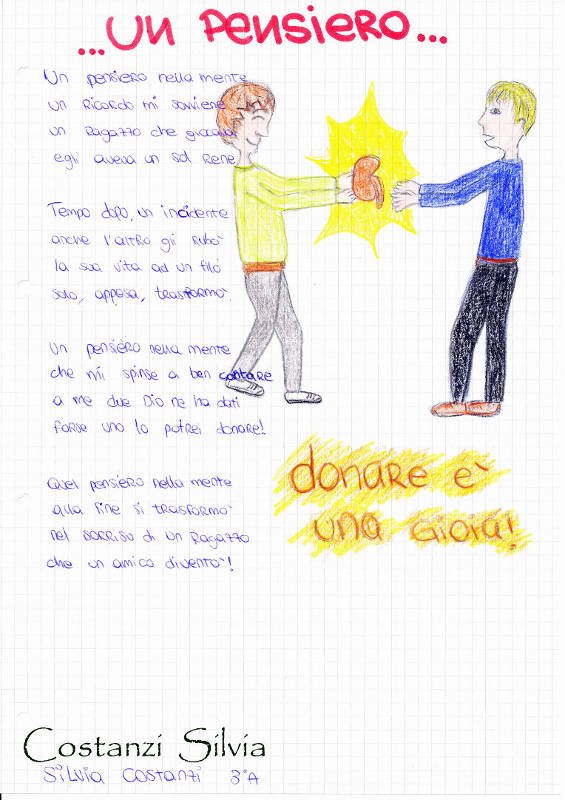 ...Un Pensiero...
Un pensiero nella mente
un Ricordo mi sovviene
un Ragazzo che giocava
egli aveva un sol Rene
Tempo dopo, un incidente
anche l'altro gli rubò
la sua vita ad un filo
solo, appesa, trasformò.
Un pensiero nella mente
che mi spinse a ben contare
a me due Dio ne ha dati
forse uno lo potrei donare!
Quel pensiero nella mente
alla fine si trasformò
nel sorriso di un Ragazzo
che un amico diventò!
donare è
una gioia!
Costanzi Silvia
Silvia Costanzi 3°A